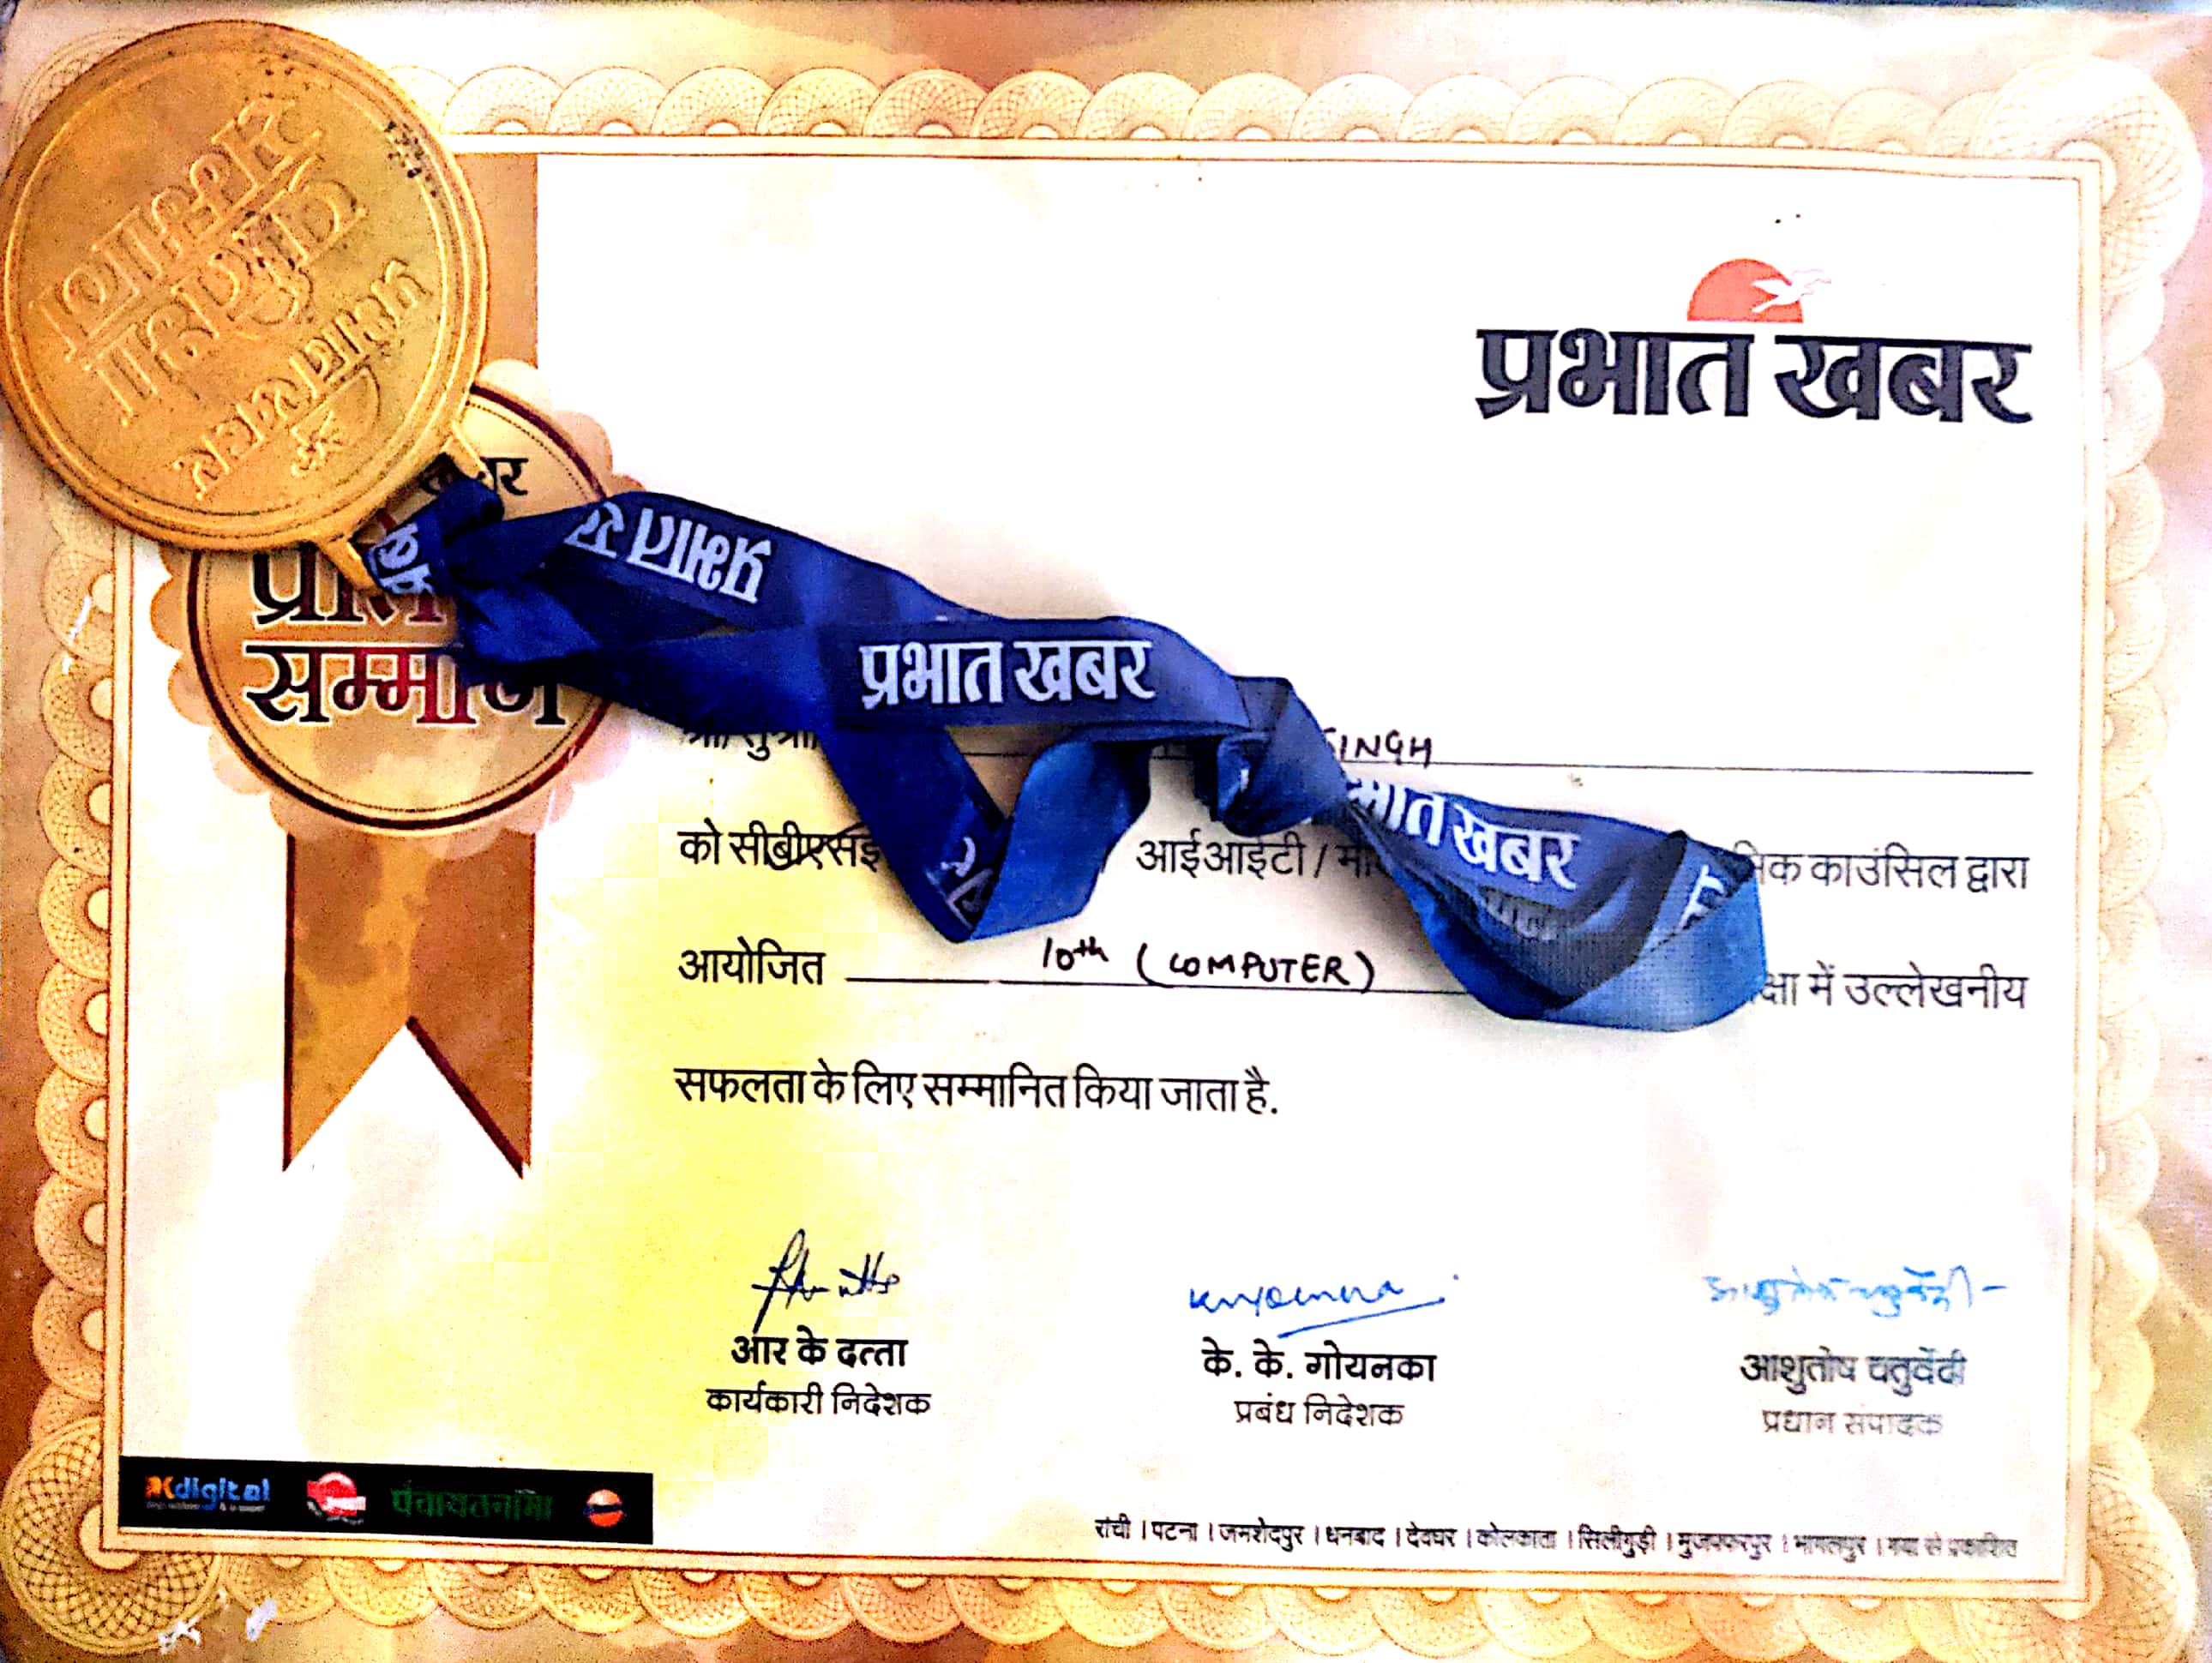 प्रतिभा
सम्मान
प्रभात खबर
प्रभात खबर
सम्मान
प्रभात
प्रभात खबर
SINGH
खबर
को सीबीएसई आईआईटी / काउंसिल द्वारा
आयोजित 10th (COMPUTER) में उल्लेखनीय
सफलता के लिए सम्मानित किया जाता है.
आर के दत्ता
कार्यकारी निदेशक
के. के. गोयनका
प्रबंध निदेशक
आशुतोष चतुर्वेदी
प्रधान संपादक
digital पंचायतनामा
रांची । पटना । जमशेदपुर । धनबाद । देवघर । कोलकाता । सिलीगुड़ी । मुजफ्फरपुर । भागलपुर । गया से प्रकाशित